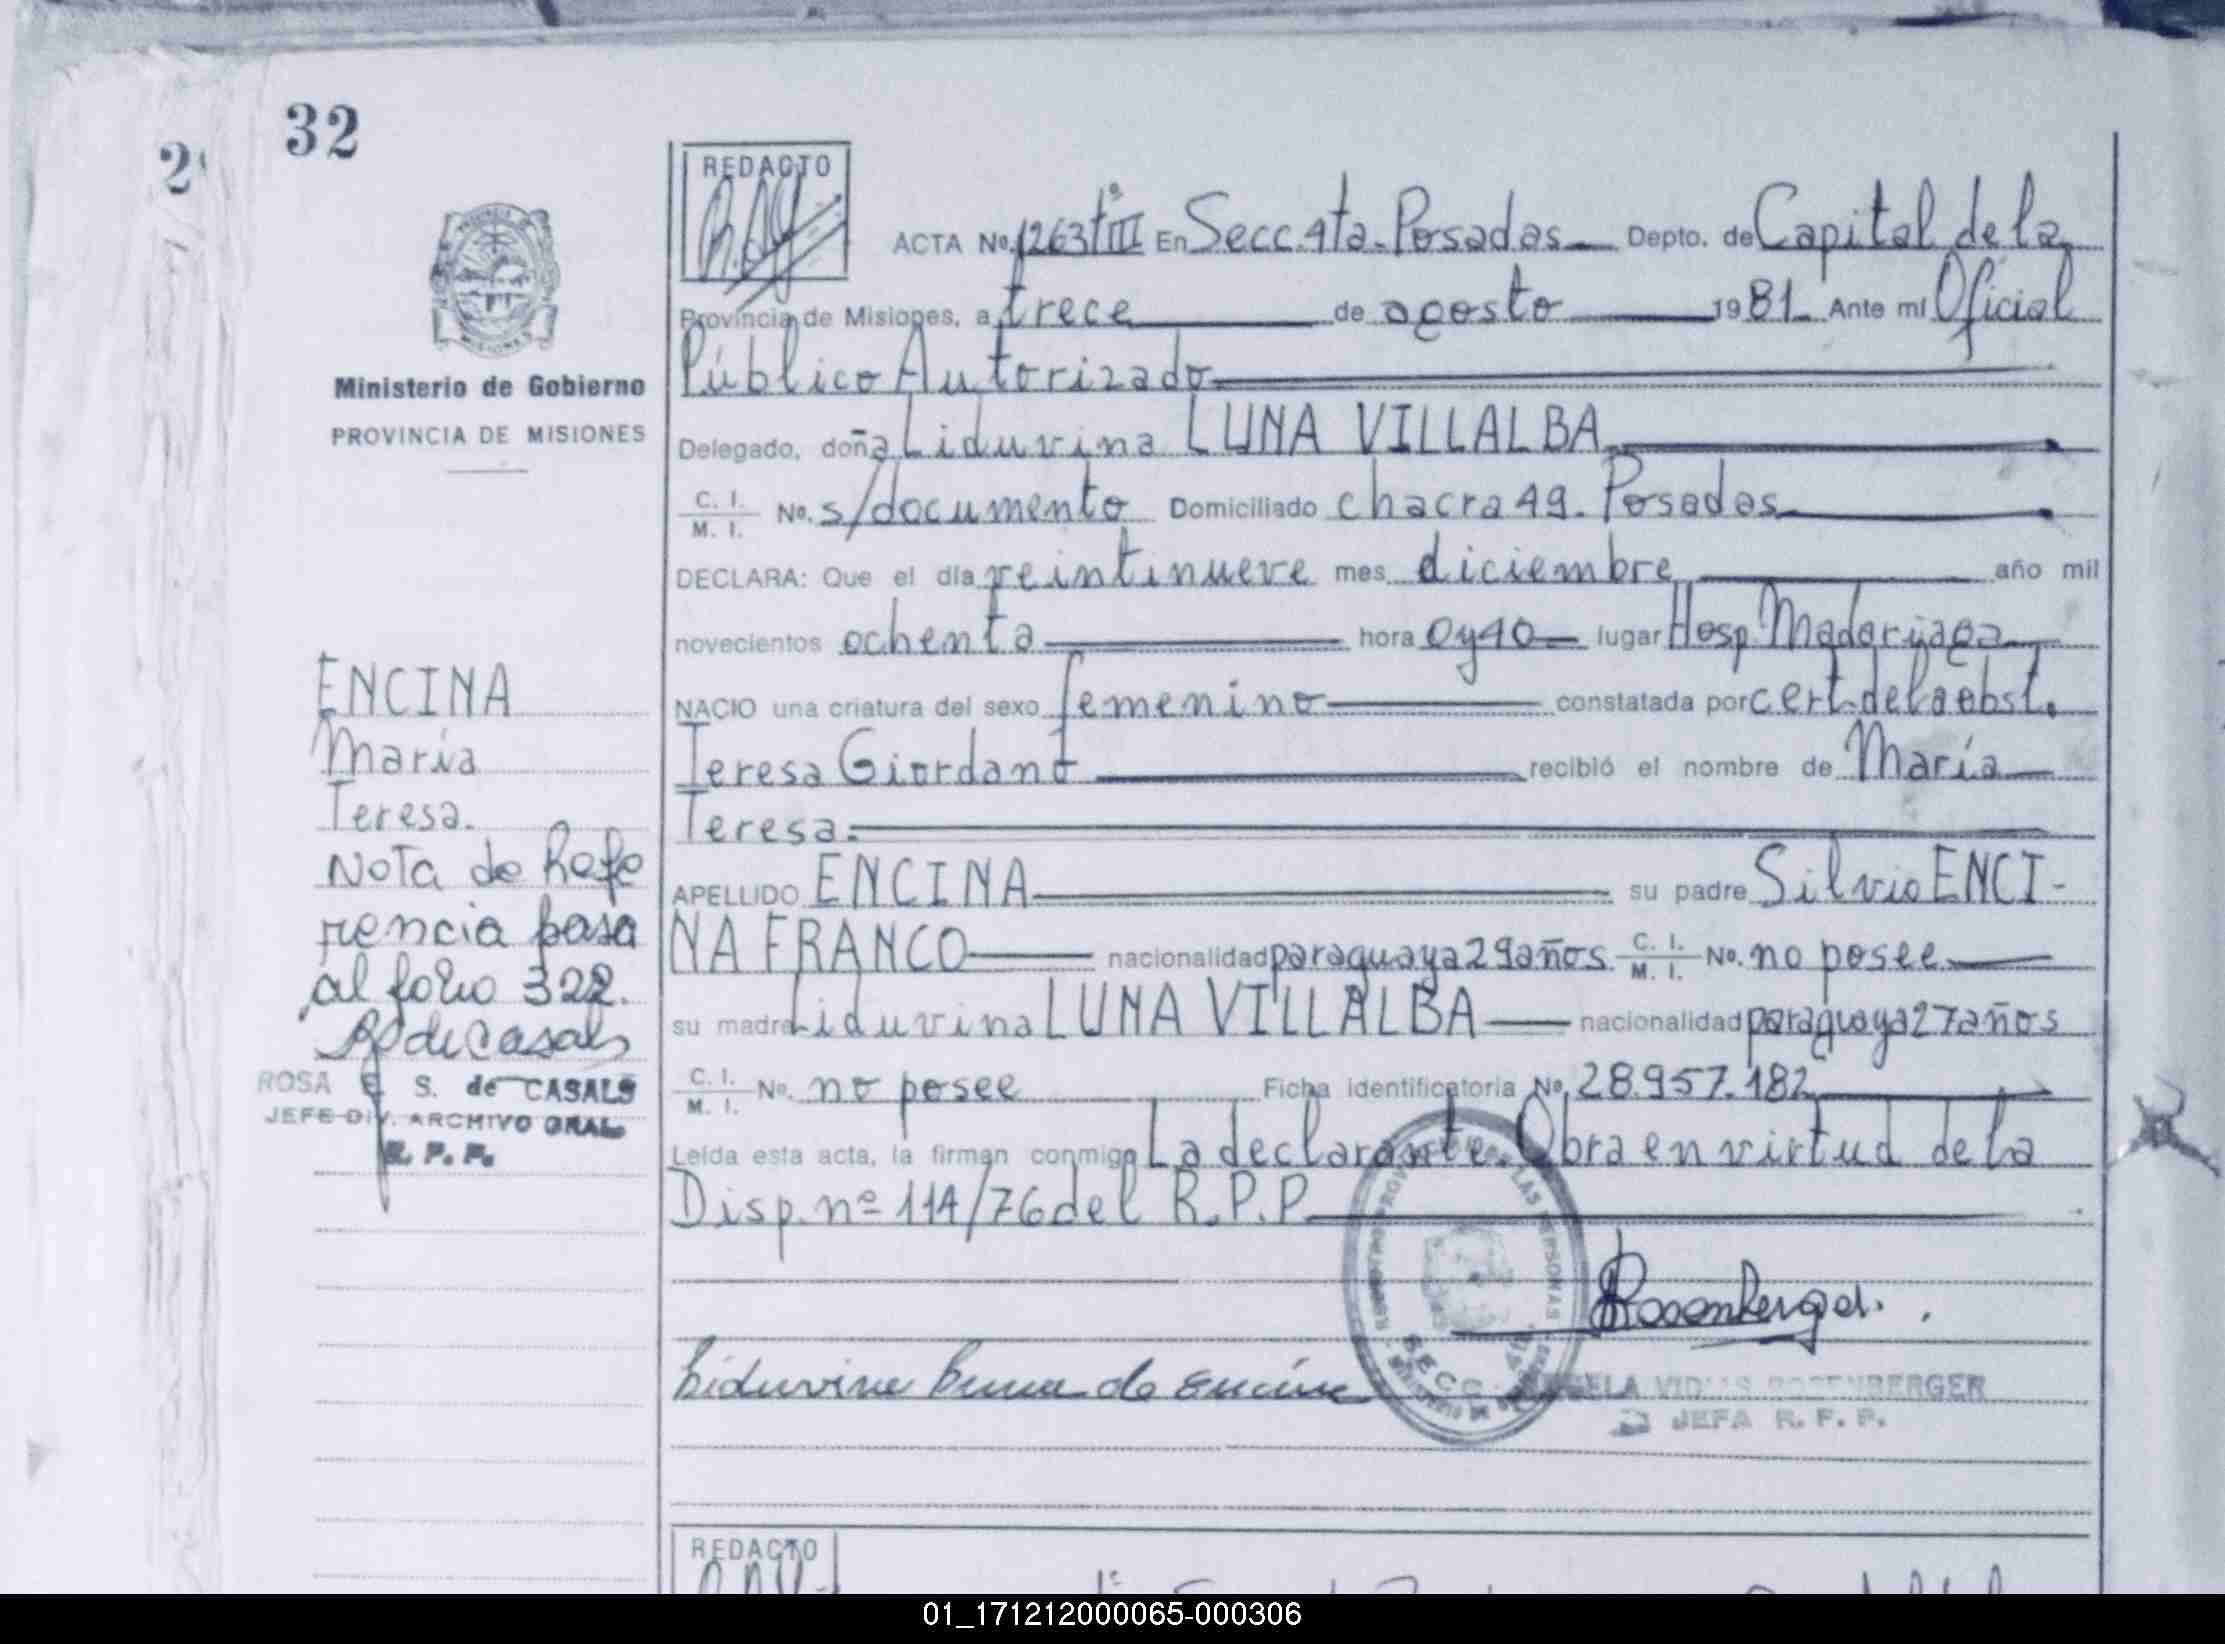 32
2
REDACTO
ACTA No. 1263 tº III En Secc. 4ta. Posadas Depto. de Capital de la
Provincia de Misiones, a trece de agosto 1981 Ante mi Oficial
Público Autorizado
Delegado, doña Liduvina LUNA VILLALBA
C. I. / M. I. No. s/documento Domiciliado chacra 49. Posadas
DECLARA: Que el día veintinueve mes diciembre año mil
novecientos ochenta hora 0 y 40 lugar Hosp. Madariaga
NACIO una criatura del sexo femenino constatada por cert. de la obst.
Teresa Giordano recibió el nombre de María
Teresa.
APELLIDO ENCINA su padre Silvio ENCI-
NA FRANCO nacionalidad paraguaya 29 años C. I. / M. I. No. no posee
su madre Liduvina LUNA VILLALBA nacionalidad paraguaya 27 años
C. I. / M. I. No. no posee Ficha identificatoria No. 28.957.182
Leída esta acta, la firman conmigo La declarante. Obra en virtud de la
Disp. nº 114/76 del R.P.P.
Rosenberger.
Liduvina Luna de Encina
ROSENBERGER
JEFA R. P. P.
SECC. 4ta.
Ministerio de Gobierno
PROVINCIA DE MISIONES
ENCINA
María
Teresa.
Nota de Refe
rencia pasa
al folio 322.
R S de Casals
ROSA E. S. de CASALS
JEFE DIV. ARCHIVO GRAL.
R. P. P.
REDACTO
01_171212000065-000306